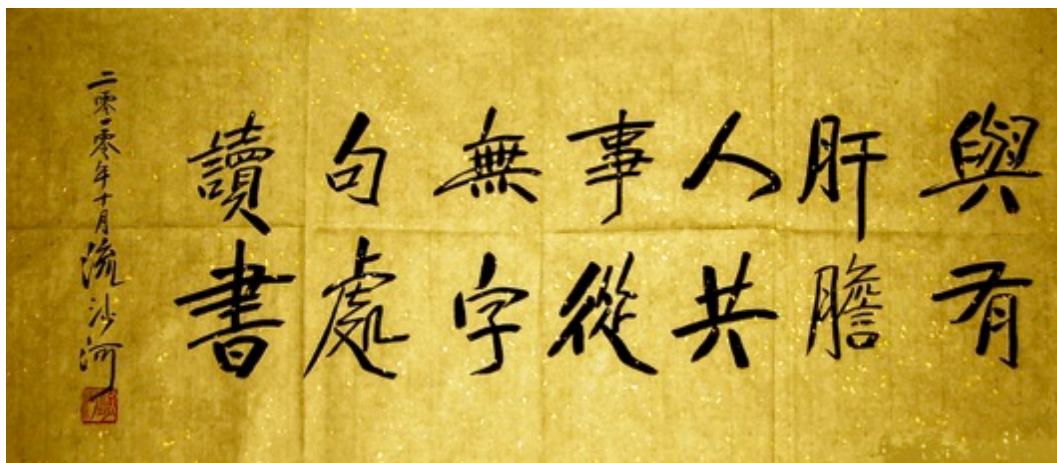 與有
肝膽
人共
事從
無字
句處
讀書
二零一零年十月流沙河